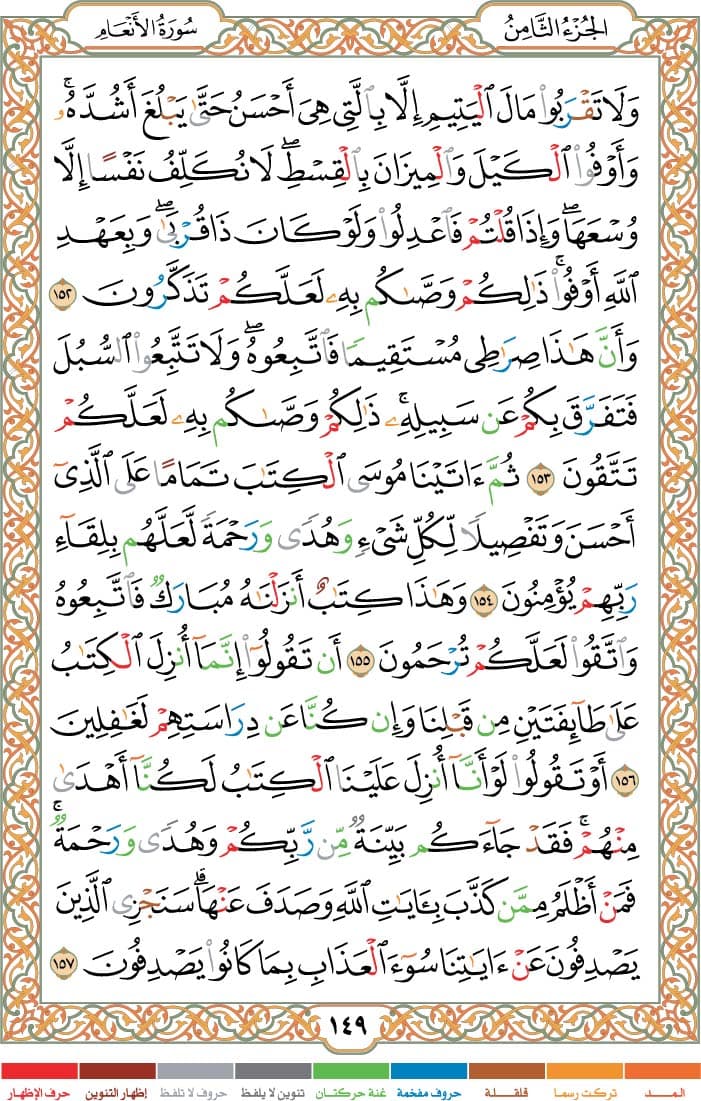 الجُزْءُ الثَّامِنُ
سُورَةُ الأَنْعَامِ
وَلَا تَقْرَبُوا۟ مَالَ ٱلْيَتِيمِ إِلَّا بِٱلَّتِى هِىَ أَحْسَنُ حَتَّىٰ يَبْلُغَ أَشُدَّهُۥ ۚ
وَأَوْفُوا۟ ٱلْكَيْلَ وَٱلْمِيزَانَ بِٱلْقِسْطِ ۖ لَا نُكَلِّفُ نَفْسًا إِلَّا
وُسْعَهَا ۖ وَإِذَا قُلْتُمْ فَٱعْدِلُوا۟ وَلَوْ كَانَ ذَا قُرْبَىٰ ۖ وَبِعَهْدِ
ٱللَّهِ أَوْفُوا۟ ۚ ذَٰلِكُمْ وَصَّىٰكُم بِهِۦ لَعَلَّكُمْ تَذَكَّرُونَ ١٥٢
وَأَنَّ هَٰذَا صِرَٰطِى مُسْتَقِيمًا فَٱتَّبِعُوهُ ۖ وَلَا تَتَّبِعُوا۟ ٱلسُّبُلَ
فَتَفَرَّقَ بِكُمْ عَن سَبِيلِهِۦ ۚ ذَٰلِكُمْ وَصَّىٰكُم بِهِۦ لَعَلَّكُمْ
تَتَّقُونَ ١٥٣ ثُمَّ ءَاتَيْنَا مُوسَى ٱلْكِتَٰبَ تَمَامًا عَلَى ٱلَّذِىٓ
أَحْسَنَ وَتَفْصِيلًا لِّكُلِّ شَىْءٍ وَهُدًى وَرَحْمَةً لَّعَلَّهُم بِلِقَآءِ
رَبِّهِمْ يُؤْمِنُونَ ١٥٤ وَهَٰذَا كِتَٰبٌ أَنزَلْنَٰهُ مُبَارَكٌ فَٱتَّبِعُوهُ
وَٱتَّقُوا۟ لَعَلَّكُمْ تُرْحَمُونَ ١٥٥ أَن تَقُولُوٓا۟ إِنَّمَآ أُنزِلَ ٱلْكِتَٰبُ
عَلَىٰ طَآئِفَتَيْنِ مِن قَبْلِنَا وَإِن كُنَّا عَن دِرَاسَتِهِمْ لَغَٰفِلِينَ
١٥٦ أَوْ تَقُولُوا۟ لَوْ أَنَّآ أُنزِلَ عَلَيْنَا ٱلْكِتَٰبُ لَكُنَّآ أَهْدَىٰ
مِنْهُمْ ۚ فَقَدْ جَآءَكُم بَيِّنَةٌ مِّن رَّبِّكُمْ وَهُدًى وَرَحْمَةٌ ۚ
فَمَنْ أَظْلَمُ مِمَّن كَذَّبَ بِـَٔايَٰتِ ٱللَّهِ وَصَدَفَ عَنْهَا ۗ سَنَجْزِى ٱلَّذِينَ
يَصْدِفُونَ عَنْ ءَايَٰتِنَا سُوٓءَ ٱلْعَذَابِ بِمَا كَانُوا۟ يَصْدِفُونَ ١٥٧
١٤٩
المـــد تركت رسما قلقــلة حروف مفخمة غنة حركتان تنوين لا يلفظ حروف لا تلفظ إظهار التنوين حرف الإظهار